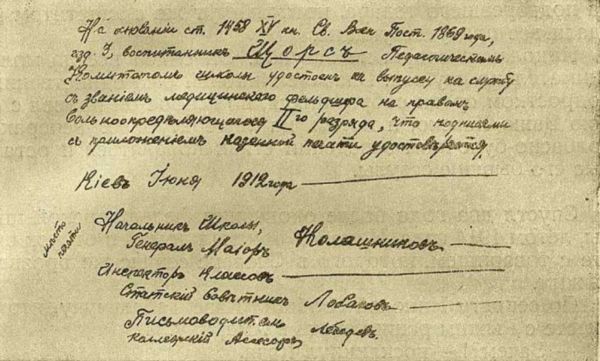 На основании ст. 1458 XV кн. Св. Воен Пост. 1869 года,
изд. I, воспитанникъ Щорсъ Педагогическимъ
Комитетомъ школы удостоен къ выпуску на службу
съ званіемъ медицинскаго фельдшера на правахъ
вольноопредѣляющагося II го разряда, что подписями
съ приложеніемъ казенной печати удостовѣряется.
Кіевъ Іюня 1912 года
Начальникъ Школы,
Генералъ Маіоръ Калашниковъ
мѣсто
печати
Инспекторъ Классовъ
Статскій Совѣтникъ Лобаковъ
Письмоводитель
Коллежскій Асессоръ Лебедевъ